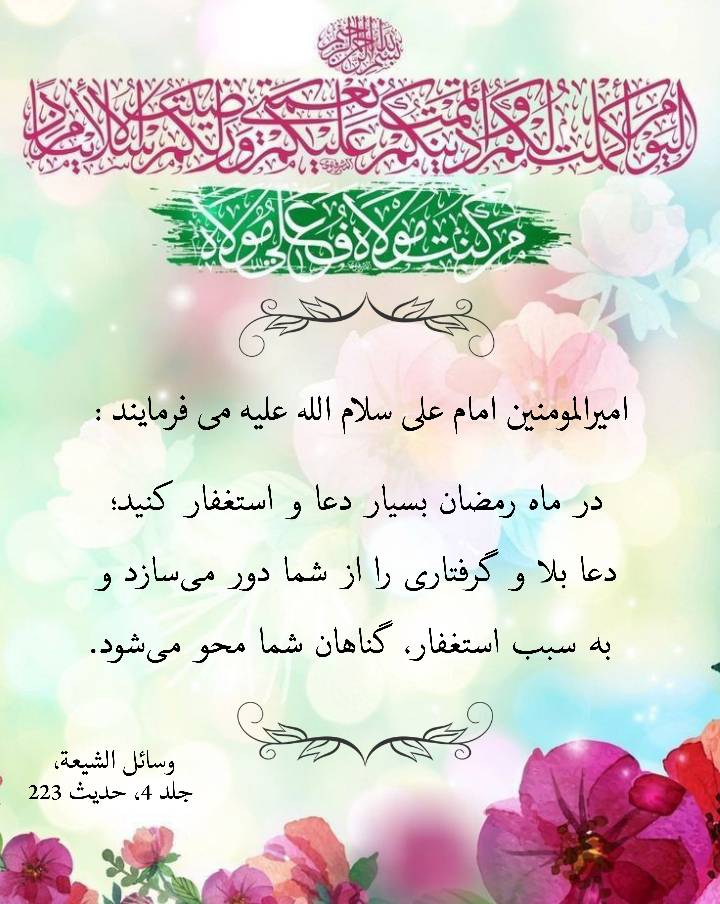 بسم الله الرحمن الرحیم
الیوم أکملت لکم دینکم و أتممت علیکم نعمتی و رضیت لکم الإسلام دینا
من کنت مولاه فعلی مولاه
امیرالمومنین امام علی سلام الله علیه می فرمایند :
در ماه رمضان بسیار دعا و استغفار کنید؛
دعا بلا و گرفتاری را از شما دور می‌سازد و
به سبب استغفار، گناهان شما محو می‌شود.
وسائل الشیعة،
جلد 4، حدیث 223